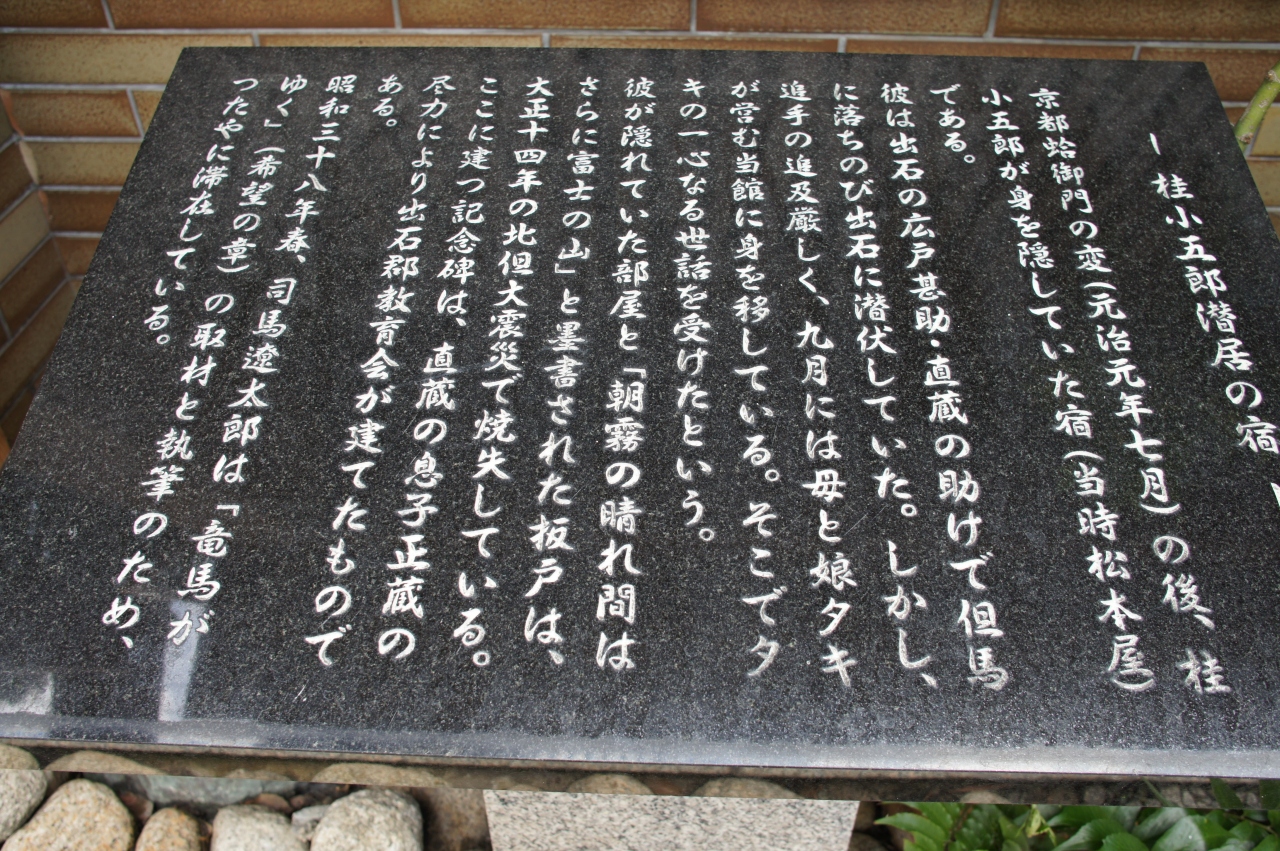 ―桂小五郎潜居の宿―
京都蛤御門の変(元治元年七月)の後、桂
小五郎が身を隠していた宿(当時松本屋)
である。
彼は出石の広戸甚助・直蔵の助けで但馬
に落ちのび出石に潜伏していた。しかし、
追手の追及厳しく、九月には母と娘タキ
が営む当館に身を移している。そこでタ
キの一心なる世話を受けたという。
彼が隠れていた部屋と「朝霧の晴れ間は
さらに富士の山」と墨書された板戸は、
大正十四年の北但大震災で焼失している。
ここに建つ記念碑は、直蔵の息子正蔵の
尽力により出石郡教育会が建てたもので
ある。
昭和三十八年春、司馬遼太郎は「竜馬が
ゆく」(希望の章)の取材と執筆のため、
つたやに滞在している。